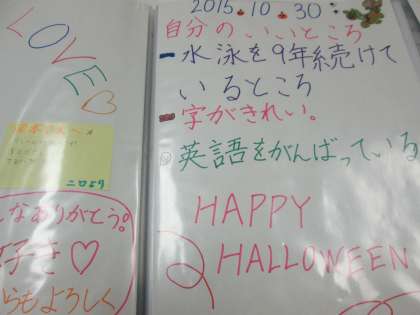 LOVE
ニロより
なありがとう。
好き♡
らもよろしく
2015.10.30
自分のいいところ
水泳を9年続けて
いるところ
字がきれい。
英語をがんばっている
HAPPY
HALLOWEEN